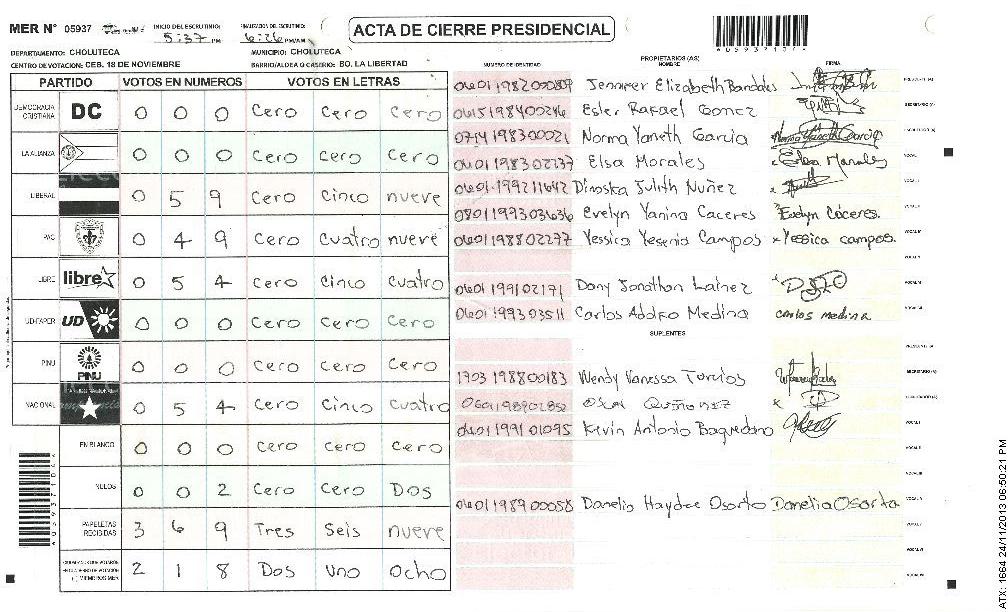 MER N° 05937 INICIO DEL ESCRUTINIO: 5:37 PM FINALIZACION DEL ESCRUTINIO: 6:26 PM/AM
ACTA DE CIERRE PRESIDENCIAL
DEPARTAMENTO: CHOLUTECA MUNICIPIO: CHOLUTECA
CENTRO DE VOTACION: CEB. 18 DE NOVIEMBRE BARRIO/ALDEA O CASERIO: BO. LA LIBERTAD
PARTIDO VOTOS EN NUMEROS VOTOS EN LETRAS
DEMOCRACIA CRISTIANA DC 0 0 0 Cero Cero Cero
LA ALIANZA 0 0 0 Cero Cero Cero
LIBERAL 0 5 9 Cero Cinco nueve
PAC 0 4 9 Cero Cuatro nueve
LIBRE libre 0 5 4 Cero Cinco Cuatro
UD-FAPER UD 0 0 0 Cero Cero Cero
PINU PINU 0 0 0 Cero Cero Cero
NACIONAL 0 5 4 Cero Cinco Cuatro
EN BLANCO 0 0 0 Cero Cero Cero
NULOS 0 0 2 Cero Cero Dos
PAPELETAS RECIBIDAS 3 6 9 Tres Seis nueve
2 1 8 Dos uno ocho
NUMERO DE IDENTIDAD PROPIETARIOS (AS) NOMBRE FIRMA
Jennifer Elizabeth
0615198400246 Ester Rafael Gomez
0714198300021 Norma Yaneth Garcia Norma Yaneth Garcia
0601198302237 Elsa Morales Elsa Morales
0601-199211642 Dinoska Julith Nuñez
0801199303636 Evelyn Yanina Caceres Evelyn Cáceres.
0601198802277 Yessica Yesenia Campos Yessica campos.
0601199102171 Dany Jonathon Lainez
0601199303511 Carlos Adolfo Medina carlos medina
SUPLENTES
1703198800183 Wendy Vanessa Torcios
0601198902852
0601199101095 Kevin Antonio Baquedano
0601198900058 Danelia Haydee Osorto Danelia Osorto
A05937104
ATX: 1664 24/11/2013 06:50:21 PM